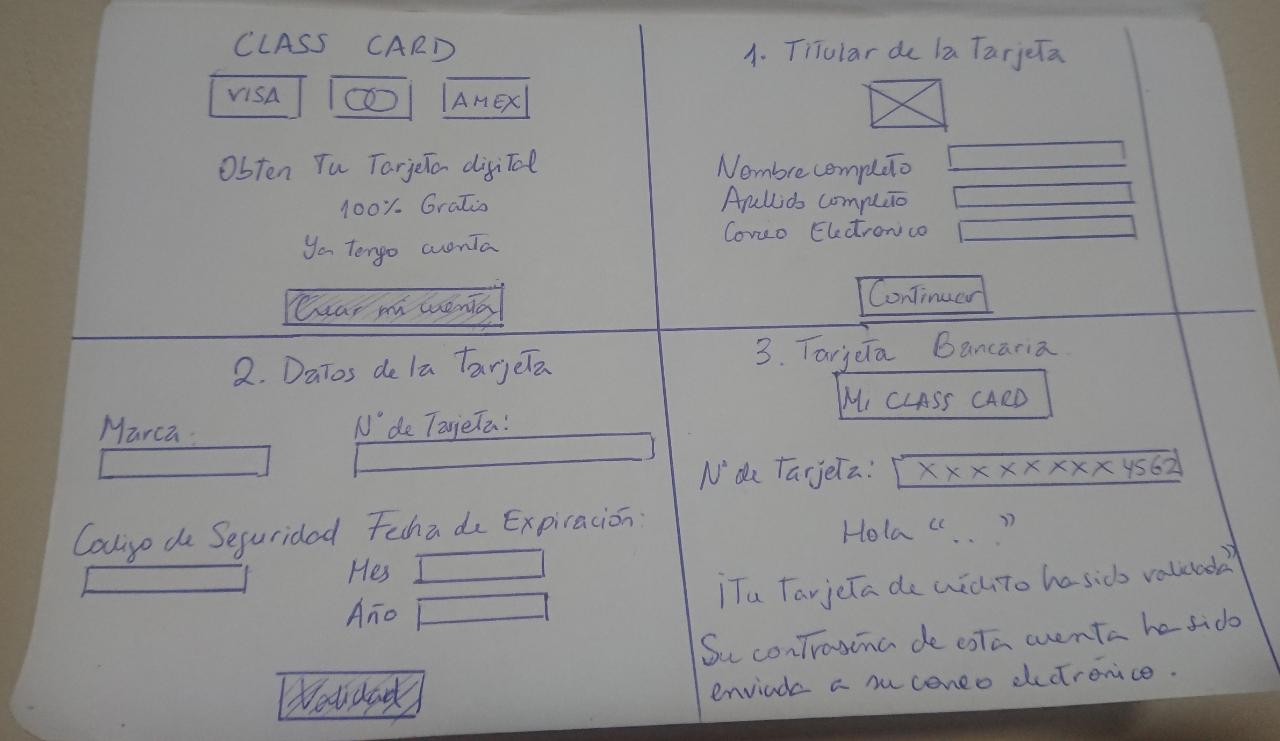 CLASS CARD
VISA
AMEX
Obten Tu Tarjeta digital
100% Gratis
Ya tengo cuenta
Crear mi cuenta
1. Titular de la Tarjeta
Nombre completo
Apellido completo
Correo Electronico
Continuar
2. Datos de la Tarjeta
Marca:
N° de Tarjeta:
Codigo de Seguridad
Fecha de Expiración:
Mes
Año
Validad
3. Tarjeta Bancaria
Mi CLASS CARD
N° de Tarjeta: XXXXXXXX4562
Hola “...”
¡Tu Tarjeta de crédito ha sido validada”
Su contraseña de esta cuenta ha sido
enviada a su correo electrónico.